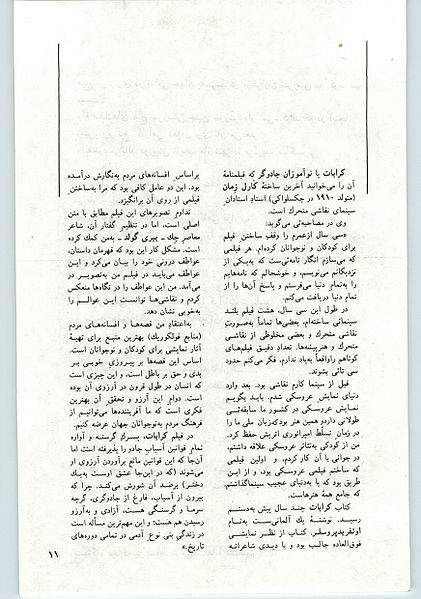 کرابات یا نوآموزان جادوگر که فیلمنامهٔ
آن را می‌خوانید آخرین ساختهٔ کارل زمان
(متولد ۱۹۱۰ در چکسلواکی) استاد استادان
سینمای نقاشی متحرك است.
وی در مصاحبه‌ئی می‌گوید:
«سی سال ازعمرم را وقف ساختن فیلم
برای کودکان و نوجوانان کرده‌ام. هر فیلمی
که می‌سازم انگار نامه‌ئی‌ست که به‌یکی از
نزدیکانم می‌نویسم، و خوشحالم که نامه‌هایم
را به‌تمام دنیا می‌فرستم و پاسخ آن‌ها را از
تمام دنیا دریافت می‌کنم.
در طول این سی سال، هشت فیلم بلند
سینمائی ساخته‌ام، بعضی‌ها تماماً به‌صورت
نقاشی متحرك و بعضی مخلوطی از نقاشی
متحرك و هنرپیشه‌ها. تعداد دقیق فیلم‌های
کوتاهم راواقعاً به‌یاد ندارم، فکر می‌کنم حدود
سی تائی بشوند.
قبل از سینما کارم نقاشی بود. بعد وارد
دنیای نمایش عروسکی شدم. باید بگویم
نمایش عروسکی در کشور ما سابقه‌ئی
طولانی داردو همین هنر بودکه‌زبان ملی ما را
در زمان تسلط امپراتوری اتریش حفظ کرد.
من از کودکی به‌تئاتر عروسکی علاقه داشتم،
در جوانی با آن کار کردم، و اولین فیلمی
که ساختم فیلمی عروسکی بود، و از این
طریق بود که پا به‌دنیای عجیب سینماگذاشتم.
که جامع همهٔ هنرهاست.
کتاب کرابات چند سال پیش به‌دستم
رسید. نوشتهٔ یك آلمانی‌ست به‌نام
اوتفریدپروسلر. کتاب از نظر نمایشی
فوق‌العاده جالب بود و با دیدی شاعرانه
براساس افسانه‌های مردم به‌نگارش درآمده
بود. این دو عامل کافی بود که مرا به‌ساختن
فیلمی از روی آن برانگیزد.
تداوم تصویرهای این فیلم مطابق با متن
اصلی است، اما در تنظیم گفتار آن، شاعر
معاصر چك ـ ییری گولد ـ به‌من کمك کرده
است. مشکل کار این بود که قهرمان داستان،
عواطف درونی خود را بیان می‌کرد و این
عواطف می‌باید در فیلم من به‌تصویر در
می‌آمد. من این عواطف را در نگاه‌ها منعکس
کردم و نقاشی‌ها توانست این عوالم را
به‌خوبی نشان دهد.
به‌اعتقاد من قصه‌ها و افسانه‌های مردم
(منابع فولکوریك) بهترین منبع برای تهیهٔ
آثار نمایشی برای کودکان و نوجوانان است.
اساس این قصه‌ها بر پیروزی خوبی بر
بدی و حق بر باطل است، و این چیزی است
که انسان در طول قرون در آرزوی آن بوده
است. دوام این آرزو و تحقق آن بهترین
فکری است که ما آفریننده‌ها می‌توانیم از
فرهنگ مردم به‌نوجوانان جهان عرضه کنیم.
در فیلم کرابات، پسرك گرسنه و آواره
تمام قوانین آسیاب جادو را پذیرفته است اما
آن‌جا که این قوانین مانع برآوردن آرزوی او
می‌شوند (که در این‌جا عشق اوست به‌یك
دختر) برضد آن شورش می‌کند. چرا که
بیرون از آسیاب، فارغ از جادوگری، گرچه
سرما و گرسنگی هست، آزادی و به‌آرزو
رسیدن هم هست؛ و این مهم‌ترین مسأله است
در زندگی بنی نوع آدمی در تمامی دوره‌های
تاریخ.»
۱۱